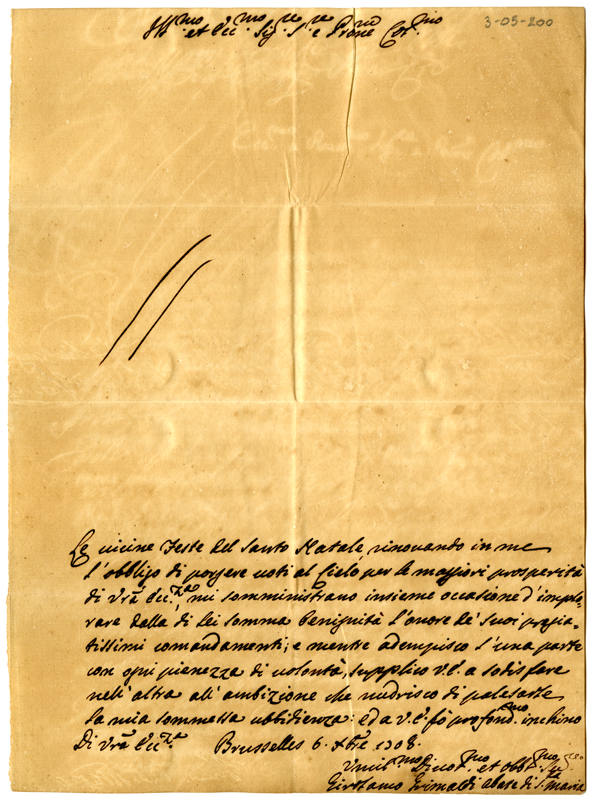 3-05-200
Ill.mo et Ecc.mo Sig.re S.re e Prone Col.mo
Le vicine Feste del Santo Natale, rinovando in me
l'obbligo di porgere voti al Cielo per le maggiori prosperità
di Vrã Ecc.za, mi somministrano insieme occasione d'implo,
rare dalla di lei somma benignità l'onore de' suoi pregia,
tissimi comandamenti; e mentre adempisco l'una parte
con ogni pienezza di volontà, supplico V.E. a sodisfare
nell'altra all'ambizione che nudrisco di palesarle
la mia sommessa ubbidienza: ed a V.E. fò profond.mo inchino
Di Vrã Ecc.za Brusselles 6. Xbre 1708.
Umil.mo Divot.mo et Obb.mo Ser.re
Girolamo Grimaldi Abate di S. Maria